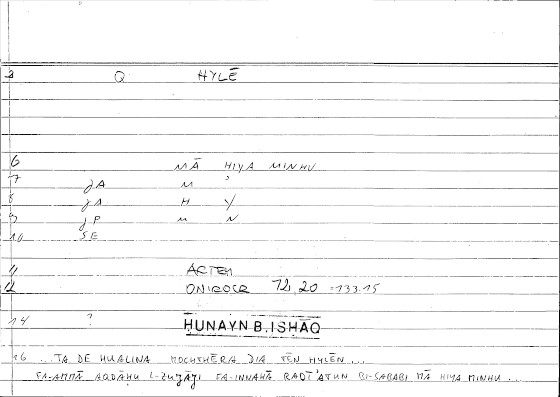 2 Q HYLĒ
6 MĀ HIYA MINHU
7 JA M ʾ
8 JA H Y
9 JP M N
10 SE
11 ARTEM
12 ONIROCR 72, 20 = 133.15
14 ? ḤUNAYN B. ISḤĀQ
16 .. TA DE HUALINA MOCHTHĒRA DIA TĒN HYLĒN ...
FA-AMMĀ AQDĀḤU L-ZUǦĀǦI FA-INNAHĀ RADĪʾATUN BI-SABABI MĀ HIYA MINHU ...